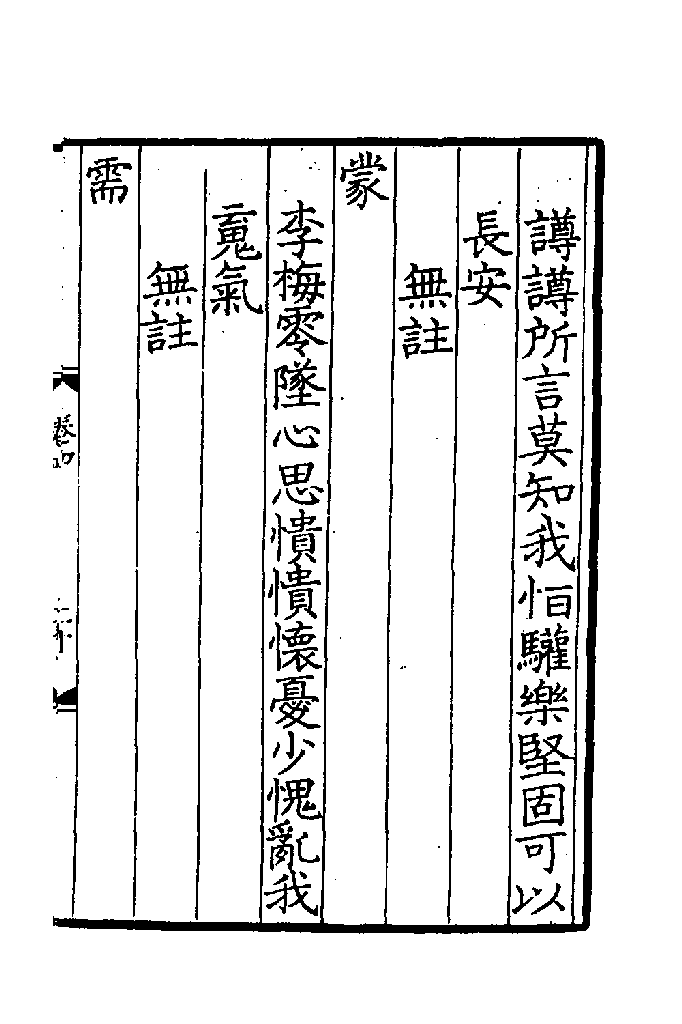 譐譐所言莫知我恒驩樂堅固可以
長安
無註
蒙
李梅零墜心思憒憒懷憂少愧亂我
䰟氣
無註
需